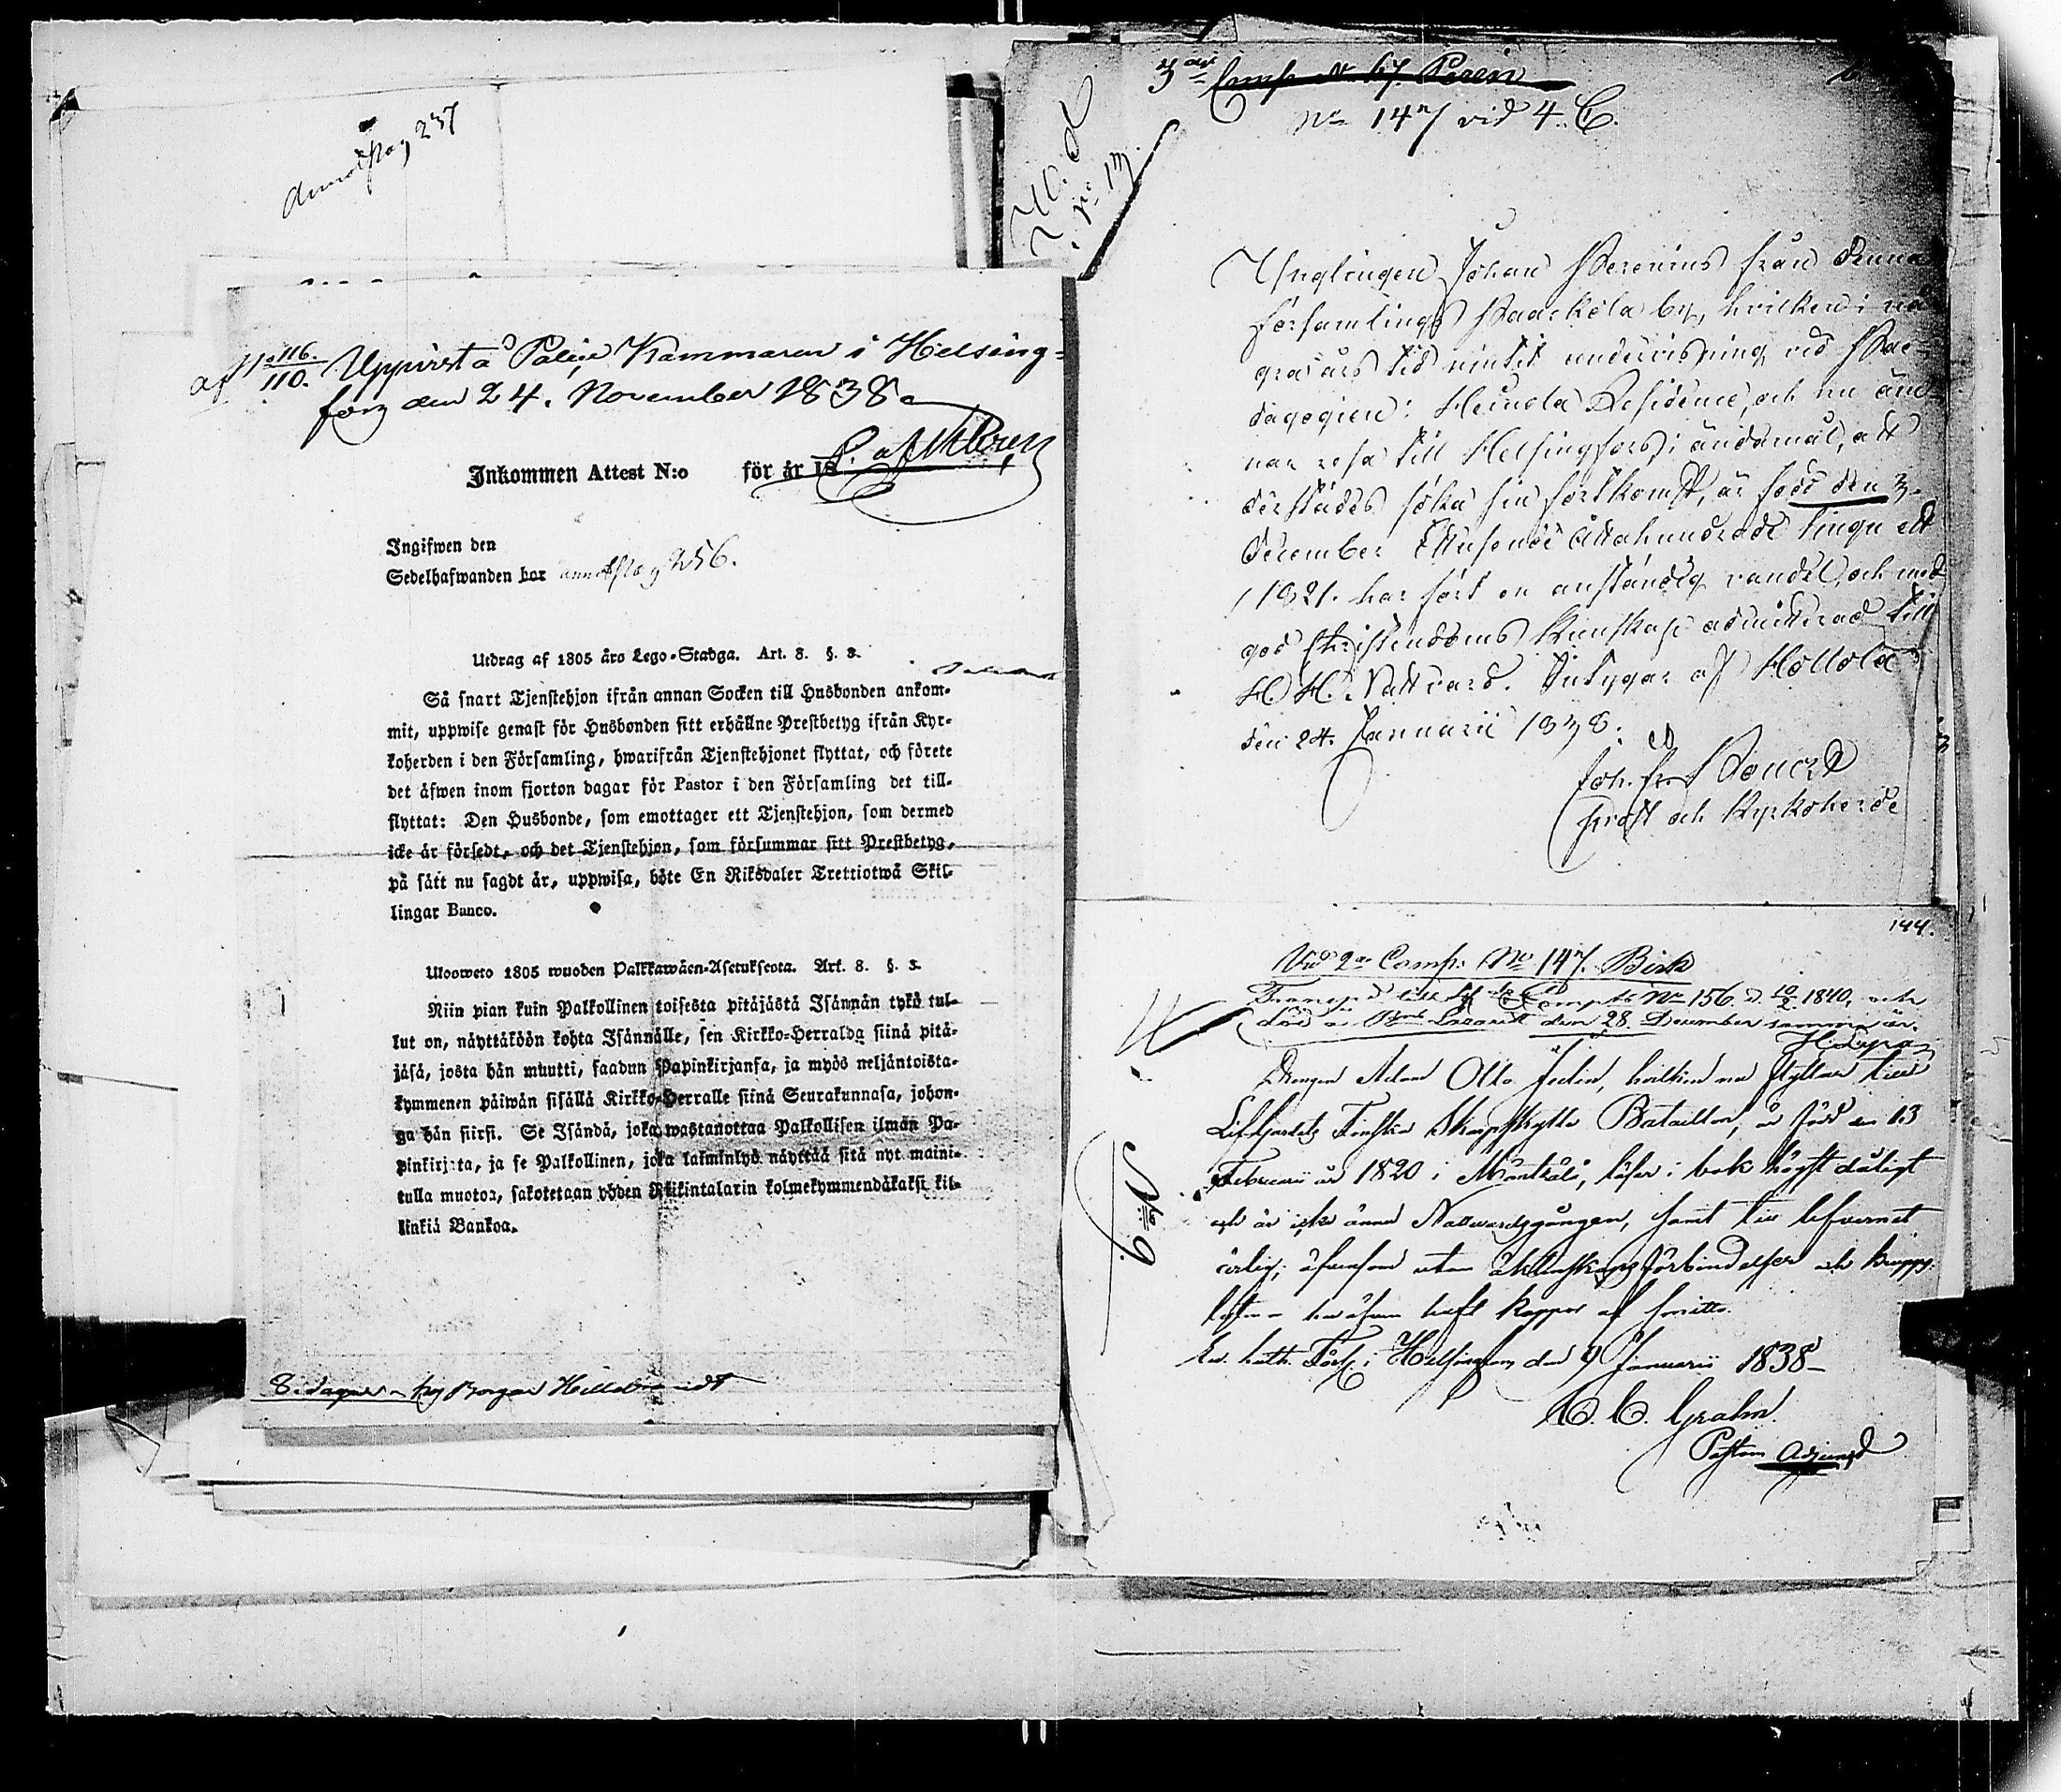 annot pag 237
af No 116. / 110. Uppvist å Police Kammaren i Helsing=
fors den 24. November 1838.
Inkommen Attest N:o för år 18
Ingifwen den
Sedelhafwanden bor annot pag 256.
Utdrag af 1805 års Lego-Stadga. Art. 8. §. 3.
Så snart Tjenstehjon ifrån annan Socken till Husbonden ankom-
mit, uppwise genast för Husbonden sitt erhållne Prestbetyg ifrån Kyr-
koherden i den Församling, hwarifrån Tjenstehjonet flyttat, och förete
det äfwen inom fjorton dagar för Pastor i den Församling det till-
flyttat: Den Husbonde, som emottager ett Tjenstehjon, som dermed
icke är försedt, och det Tjenstehjon, som försummar sitt Prestbetyg,
på sätt nu sagdt är, uppwisa, böte En Riksdaler Trettiotwå Skil-
lingar Banco.
Ulosweto 1805 wuoden Palkkawäen-Asetuksesta. Art. 8. §. 3.
Niin pian kuin Palkollinen toisesta pitäjästä Isännän tykö tul-
lut on, näyttäköön kohta Isännälle, sen Kirkko-Herralda siinä pitä-
jäsä, josta hän muutti, saadun Papinkirjansa, ja myös neljäntoista-
kymmenen päiwän sisällä Kirkko-Herralle siinä Seurakunnasa, johon-
ga hän siirsi. Se Isändä, joka wastanottaa Palkollisen ilman Pa-
pinkirjata, ja se Palkollinen, joka laiminlyö näyttää sitä nyt maini-
tulla muotoa, sakotetaan yhden Riikintalarin kolmekymmendäkaksi kil-
linkiä Bankoa.
8. dagar hos Borgar Hillebrandt
3dje Comp. No 67. Peren
No 147 vid 4. C.
No 13
Ynglingen Johan Serenius från denna
församlings Paarkola by, hvilken i nå-
gra års tid njutit undervisning vid Pae-
dagogien i Heinola Residence, och nu äm-
nar resa till Helsingfors, i ändamål, att
derstädes söka sin fortkomst, är född den 3.
December Ettusende Åttahundrade tjugu ett
1821. har fört en anständig vandel, och med
god Christendoms kunskap admitterad till
H. H. Nattvard. Intygar af Hollola
den 24. Januarii 1838.
Joh. Fr.
Prost och Kyrkoherde
144.
Vid 2a Comp. No 147. Birk
Transp. till Lif Comp:s No 156. d. 10/2 1840, och
död å Lazarett den 28. December samma år.
No 9.
Drengen Adam Otto Jedin, hvilken nu flyttar till
Lifgardets Finska Skarpskytte Bataillon, är född den 13
Februarii år 1820 i Mäntsälä, läser i bok högst dåligt
och är icke ännu Nattvardsgången, samt till lefvernet
ärlig, äfvensom utan äktenskapsförbindelser och kropps-
lyten - har äfven haft koppor af smitta.
Ev. Luth. Förs. i Helsingfors den 9 Januarii 1838
C. C. Grahn.
Pastors Adjunct